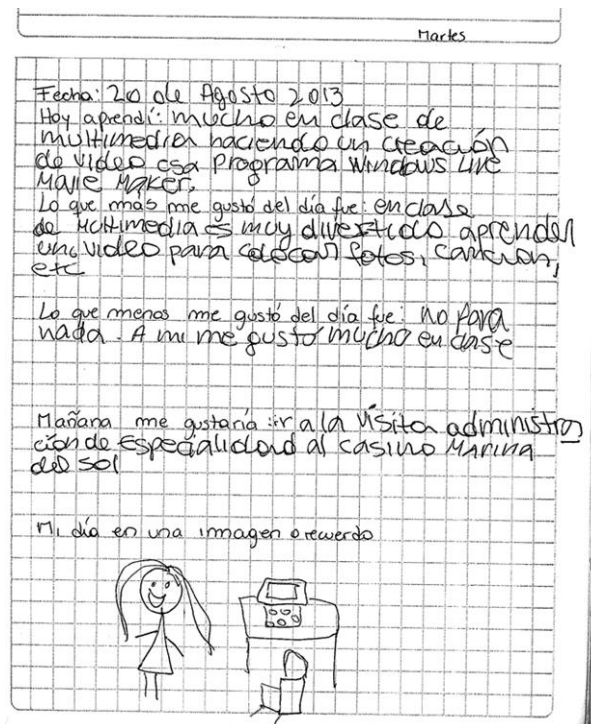 Martes
Fecha: 20 de Agosto 2013
Hoy aprendí: mucho en clase de
multimedia haciendo un creación
de video esa Programa Windows Live
Movie Maker.
Lo que más me gustó del día fue: en clase
de Multimedia es muy divertido aprender
un video para colocar fotos, canción,
etc
Lo que menos me gustó del día fue: no para
nada. A mi me gusto mucho en clase
Mañana me gustaría ir a la visita administra
ción de Especialidad al casino Marina
del sol
Mi día en una immagen o recuerdo